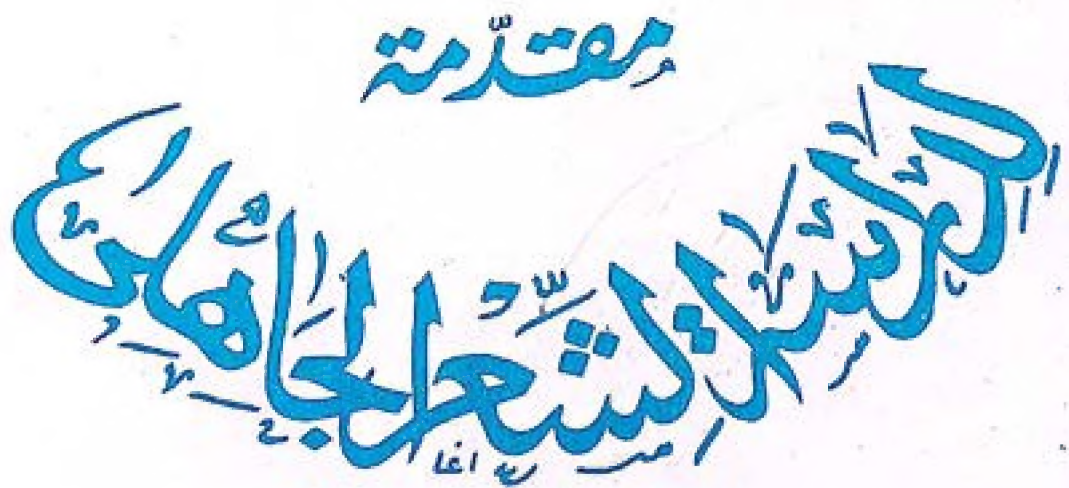 مقدّمة
لدراسة الشّعر الجاهلي